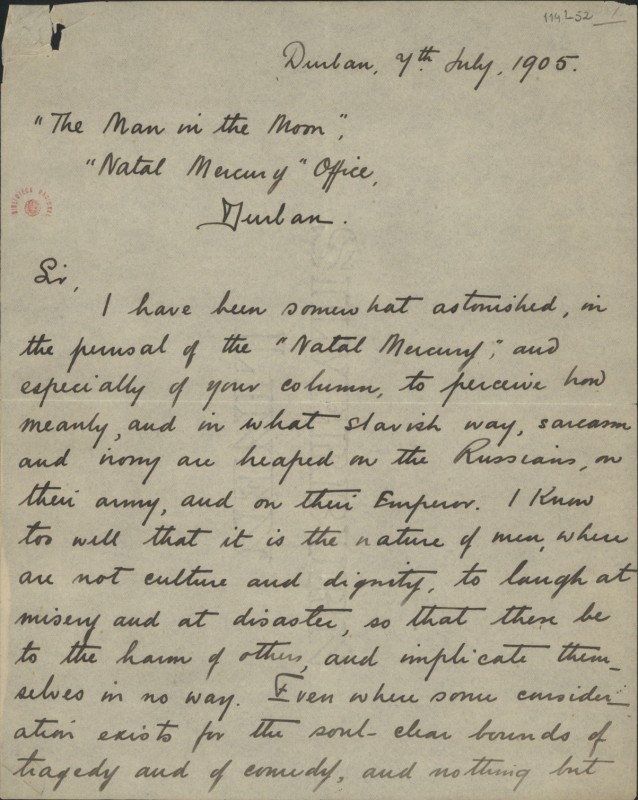 114¹-52 1.
Durban, 7th July, 1905.
"The Man in the Moon",
"Natal Mercury" Office,
Durban.
Sir,
I have been somewhat astonished, in
the perusal of the "Natal Mercury", and
especially of your column, to perceive how
meanly, and in what slavish way, sarcasm
and irony are heaped on the Russians, on
their army, and on their Emperor. I know
too well that it is the nature of men, where
are not culture and dignity, to laugh at
misery and at disaster, so that these be
to the harm of others, and implicate them-
selves in no way. Even where some consider-
ation exists for the soul-clear bounds of
tragedy and of comedy, and nothing but